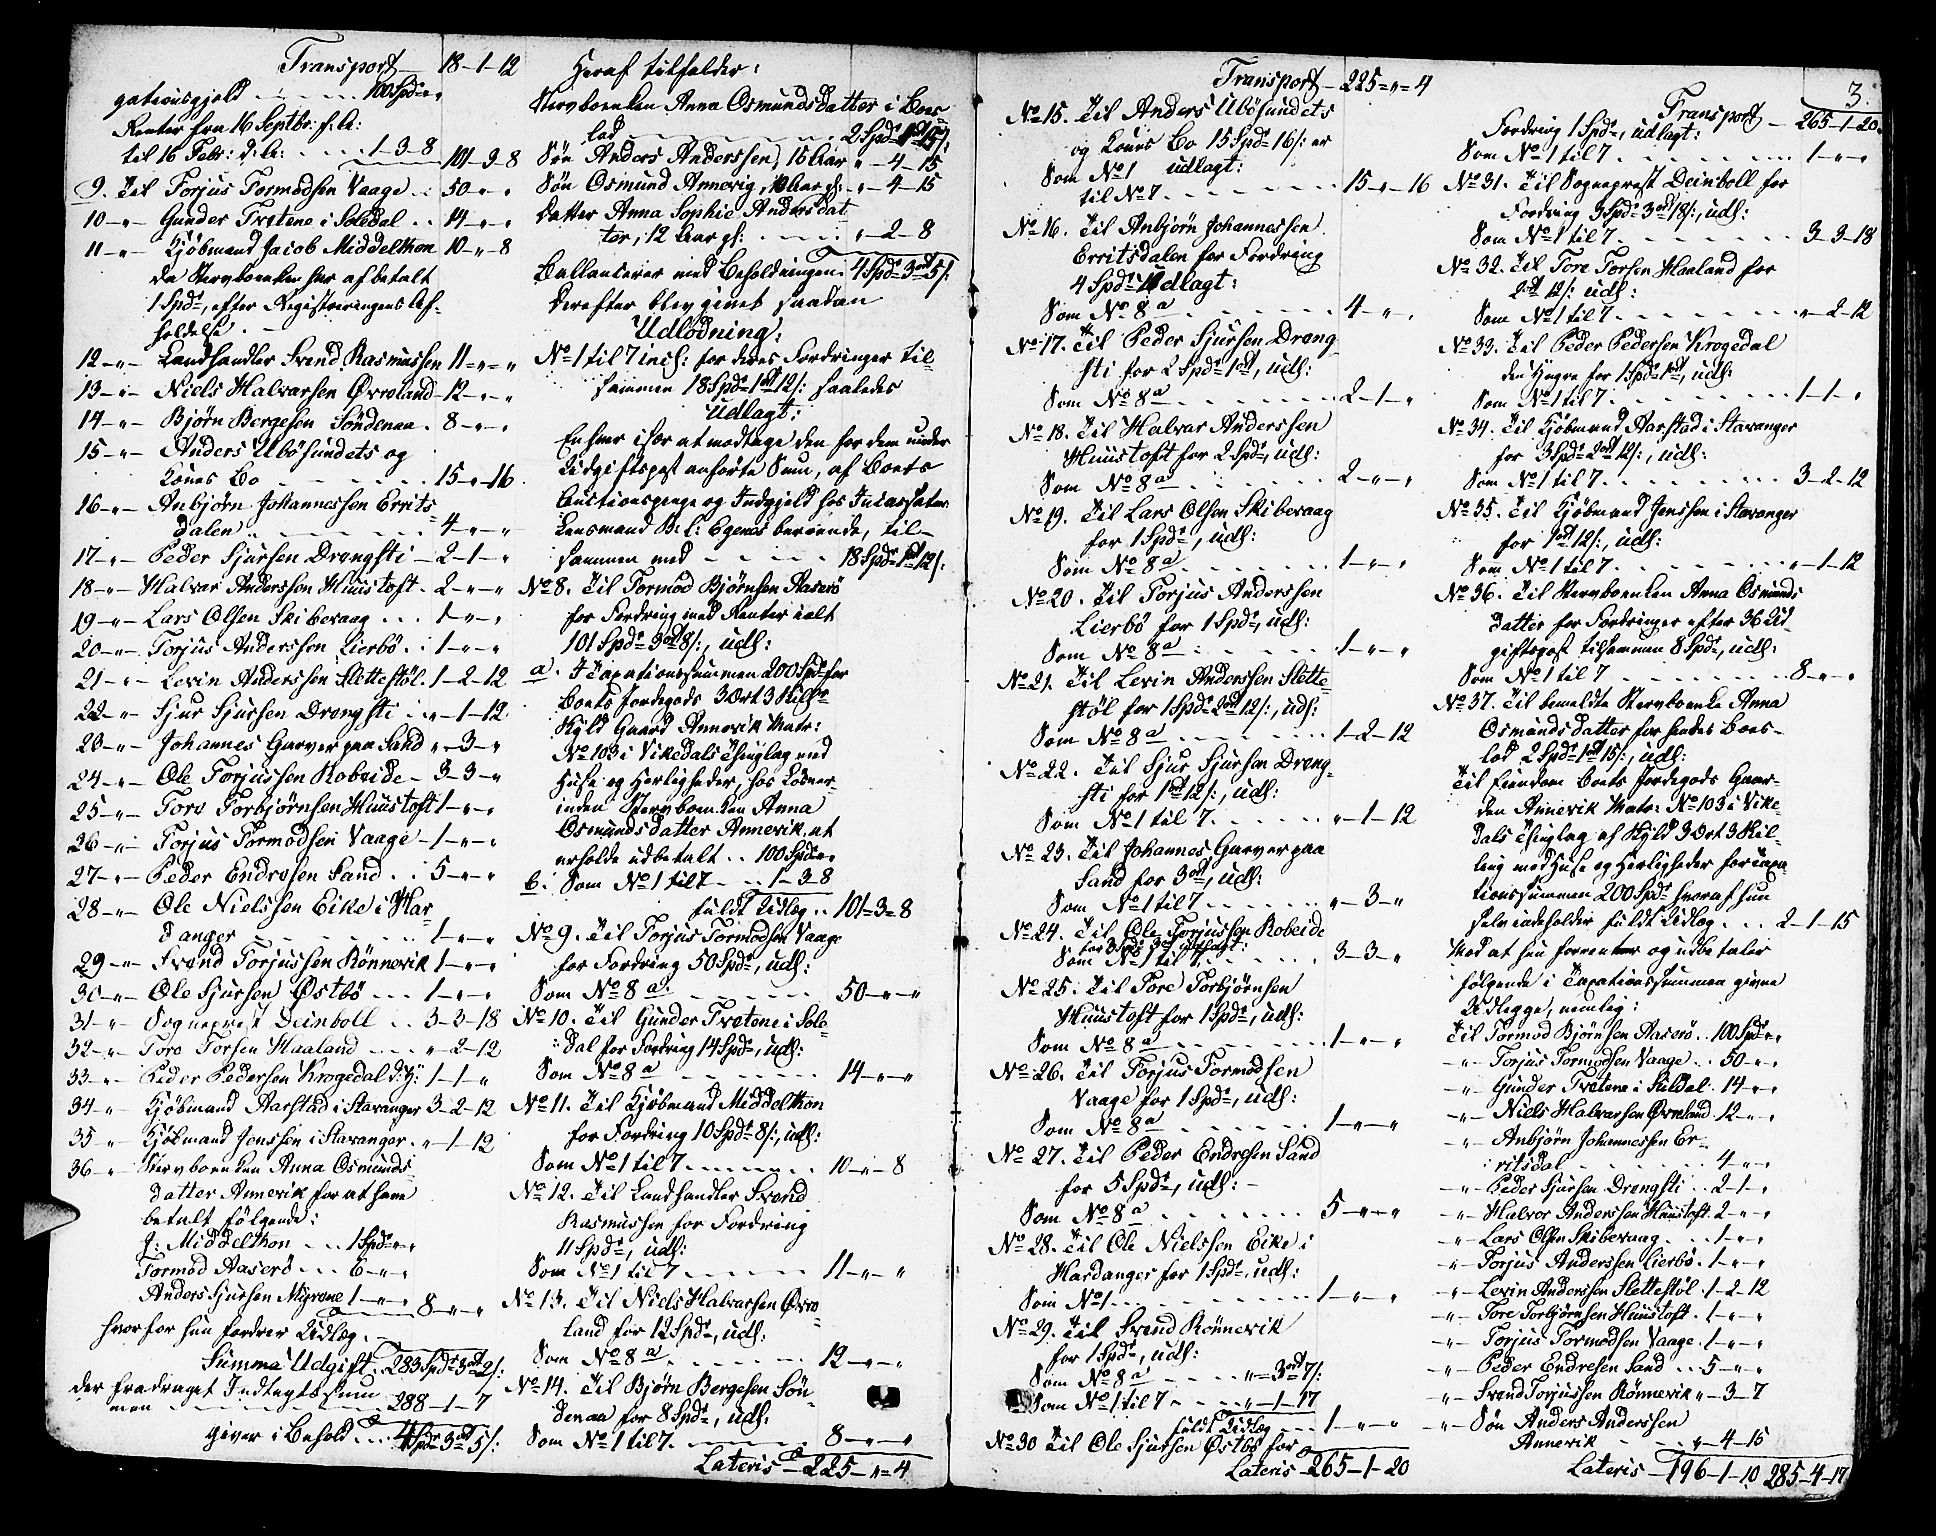 Transport 18-1-12
gationsgjeld 100 Spdr „ „
Renter fra 16 Septbr: f: A:
til 16 Febr: d: A: 1-3-8 101-3-8
9. Til Torjus Tormodsen Vaage 50-„-„
10-„- Gunder Tvetene i Soledal 14-„-„
11-„- Kjöbmand Jacob Middelthon 10-„-8
da Stervboenken har afbetalt
1 Spdr, efter Registreringens Af-
holdelse.
12-„- Landhandler Svend Rasmussen 11-„-„
13-„- Niels Halvarsen Øvreland 12-„-„
14-„- Bjørn Bergesen Söndenaa 8-„-„
15-„- Anders Ubösundets og
Kones Bo 15-„-16
16-„- Anbjørn Johannessen Errits-
dalen 4-„-„
17-„- Peder Sjursen Drengsti 2-1-„
18-„- Halvar Anderssen Huustoft 2-„-„
19-„- Lars Olsen Skibevaag 1-„-„
20-„- Torjus Anderssen Lierbö 1-„-„
21-„- Levin Anderssen Slettestöl 1-2-12
22-„- Sjur Sjursen Drengsti „-1-12
23-„- Johannes Garver paa Sand „-3-„
24-„- Ole Torjussen Robeide 3-3-„
25-„- Tore Torbjørnsen Huustoft 1-„-„
26-„- Torjus Tormodsen Vaage 1-„-„
27-„- Peder Endresen Sand 5-„-„
28-„- Ole Nielssen Eike i Har
danger 1-„-„
29-„- Svend Torjussen Rönnevik 1-„-„
30-„- Ole Sjursen Østbö 1-„-„
31-„- Sogneprest Deinboll 3-3-18
32-„- Tore Torsen Haaland „-2-12
33-„- Peder Pedersen Krogedal d: y: 1-1-„
34-„- Kjöbmand Aarstad i Stavanger 3-2-12
35-„- Kjöbmand Jenssen i Stavanger „-1-12
36-„- Stervboenken Anna Osmunds
datter Annevik for at have
betalt følgende:
J: Middelthon 1 Spdr „ „
Tormod Aaserö 6-„-„
Anders Sjursen Myrene 1-„-„ 8-„-„
hvorfor hun fordrer Udlæg.
Summa Udgift 283 Spdr 3 ort 2 /:
der fradraget Indtægtssum
men 288-1-7
giver i Behold 4 Spdr 3 ort 5 /:
Heraf tilfalder:
Stervboenken Anna Osmundsdatter i Boes-
lod 2 Spdr 1 ort 15 /:
Søn Anders Anderssen, 15 Aar „-4-15
Søn Osmund Annevig, 10 Aar gl: „-4-15
Datter Anna Sophie Andersdat
ter, 12 Aar gl: „-2-8
Ballancerer med Beholdningen 4 Spdr 3 ort 5 /:
Derefter blev givet saadan
Udlödning:
No 1 til 7 incl: for deres Fordringer til-
sammen 18 Spdr 1 ort 12 /: saaledes
Udlagt:
Enhver især at modtage den for dem under
Udgiftspost anförte Sum, af Boets
Auctionspenge og Indgjeld hos Incassator
Lensmand B: L: Egenes beroende, til-
sammen med 18 Spdr 1 ort 12 /:
No 8. Til Tormod Bjørnsen Aaserö
for Fordring med Renter ialt
101 Spdr 3 ort 8 /:, udl:
a. I Taxationssummen 200 Spdr for
Boets Jordegods 3 Ort 3 Skill:
Skyld Gaard Annevik Matr:
No 103 i Vikedals Thinglag med
Huse og Herligheder, hos Løsner-
inden Stervboenken Anna
Osmundsdatter Annevik, at
erholde udbetalt 100 Spdr „ „
b. Som No 1 til 7 1-3-8
fuldt Udlæg 101-3-8
No 9. Til Torjus Tormodsen Vaage
for Fordring 50 Spdr, udl:
Som No 8 a. 50-„-„
No 10. Til Gunder Tvetene i Sole-
dal for Fordring 14 Spdr, udl:
Som No 8 a 14-„-„
No 11. Til Kjøbmand Middelthon
for Fordring 10 Spdr 8 /:, udl:
Som No 1 til 7 10-„-8
No 12. Til Landhandler Svend
Rasmussen for Fordring
11 Spdr, udl:
Som No 1 til 7 11-„-„
No 13. Til Niels Halvarsen Øvre-
land for 12 Spdr, udl:
Som No 8 a 12-„-„
No 14. Til Bjørn Bergesen Sön-
denaa for 8 Spdr, udl:
Som No 1 til 7. 8-„-„
Lateris 225-„-4
Transport 225-„-4
No 15. Til Anders Ubösundets
og Kones Bo 15 Spdr 16 /: er
Som No 1 udlagt:
til No 7 15-„-16
No 16. Til Anbjørn Johannessen
Erritsdalen for Fordring
4 Spdr Udlagt:
Som No 8 a 4-„-„
No 17. Til Peder Sjursen Dreng-
sti for 2 Spdr 1 ort, udl:
Som No 8 a 2-1-„
No 18. Til Halvar Anderssen
Huustoft for 2 Spdr, udl:
Som No 8 a 2-„-„
No 19. Til Lars Olsen Skibevaag
for 1 Spdr, udl:
Som No 8 a 1-„-„
No 20. Til Torjus Anderssen
Lierbö for 1 Spdr, udl:
Som No 8 a 1-„-„
No 21. Til Levin Anderssen Slette-
stöl for 1 Spdr 2 ort 12 /:, udl:
Som No 8 a 1-2-12
No 22. Til Sjur Sjursen Dreng-
sti for 1 ort 12 /:, udl:
Som No 1 til 7 „-1-12
No 23. Til Johannes Garver paa
Sand for 3 ort, udl:
Som No 1 til 7 „-3-„
No 24. Til Ole Torjussen Robeide
for 3 Spdr 3 ort udlagt:
Som No 1 til 7 3-3-„
No 25. Til Tore Torbjörnsen
Huustoft for 1 Spdr, udl:
Som No 8 a 1-„-„
No 26. Til Torjus Tormodsen
Vaage for 1 Spdr, udl:
Som No 8 a 1-„-„
No 27. Til Peder Endresen Sand
for 5 Spdr, udl:
Som No 8 a 5-„-„
No 28. Til Ole Nielssen Eike i
Hardanger for 1 Spdr, udl:
Som No 1 1-„-„
No 29. Til Svend Rönnevik
for 1 Spdr, udl:
Som No 8 a „-3 ort 7 /:
Som No 1 til 7 „-1-17
fuldt Udlæg 1-„-„
No 30 Til Ole Sjursen Østbö for
Lateris 265-1-20
3.
Transport 265-1-20.
Fordring 1 Spdr, udlagt:
Som No 1 til 7 1-„-„
No 31. Til Sogneprest Deinboll for
Fordring 3 Spdr 3 ort 18 /:, udl:
Som No 1 til 7 3-3-18
No 32. Til Tore Torsen Haaland for
2 ort 12 /: udl:
Som No 1 til 7 „-2-12
No 33. Til Peder Pedersen Krogedal
den Yngre for 1 Spdr 1 ort, udl:
Som No 1 til 7 1-1-„
No 34. Til Kjöbmand Aarstad i Stavanger
for 3 Spdr 2 ort 12 /:, udl:
Som No 1 til 7 3-2-12
No 35. Til Kjöbmand Jenssen i Stavanger
for 1 ort 12 /:, udl:
Som No 1 til 7 „-1-12
No 36. Til Stervboenken Anna Osmunds
datter for Fordringer efter 36 Ud-
giftspost tilsammen 8 Spdr, udl:
Som No 1 til 7 8-„-„
No 37. Til bemeldte Stervboenke Anna
Osmundsdatter for hendes Boes-
lod 2 Spdr 1 ort 15 /:, udl:
Til Eiendom Boets Jordegods Gaar-
den Annevik Matr: No 103 i Vike-
dals Thinglag af Skyld 3 Ort 3 Skil-
ling med Huse og Herligheder for Taxa-
tionssummen 200 Spdr hvoraf hun
selv indeholder fuldt Udlæg 2-1-15
Mod at hun forrenter og udbetaler
følgende i Taxationssummen givne
Udlegge, nemlig:
Til Tormod Bjørnsen Aaserö 100 Spdr „ „
-„- Torjus Tormodsen Vaage 50-„-„
-„- Gunder Tvetene i Suldal 14-„-„
-„- Niels Halvarsen Øvreland 12-„-„
-„- Anbjörn Johannessen Er-
ritsdal 4-„-„
-„- Peder Sjursen Drengsti 2-1-„
-„- Halvor Anderssen Huustoft 2-„-„
-„- Lars Olsen Skibevaag 1-„-„
-„- Torjus Anderssen Lierbö 1-„-„
-„- Levin Anderssen Slettestöl 1-2-12
-„- Tore Torbjörnsen Huustoft 1-„-„
-„- Torjus Tormodsen Vaage 1-„-„
-„- Peder Endresen Sand 5-„-„
-„- Svend Torjussen Rönnevik „-3-7
-„- Søn Anders Anderssen
Annevik „-4-15
Lateris 196-1-10 285-4-17